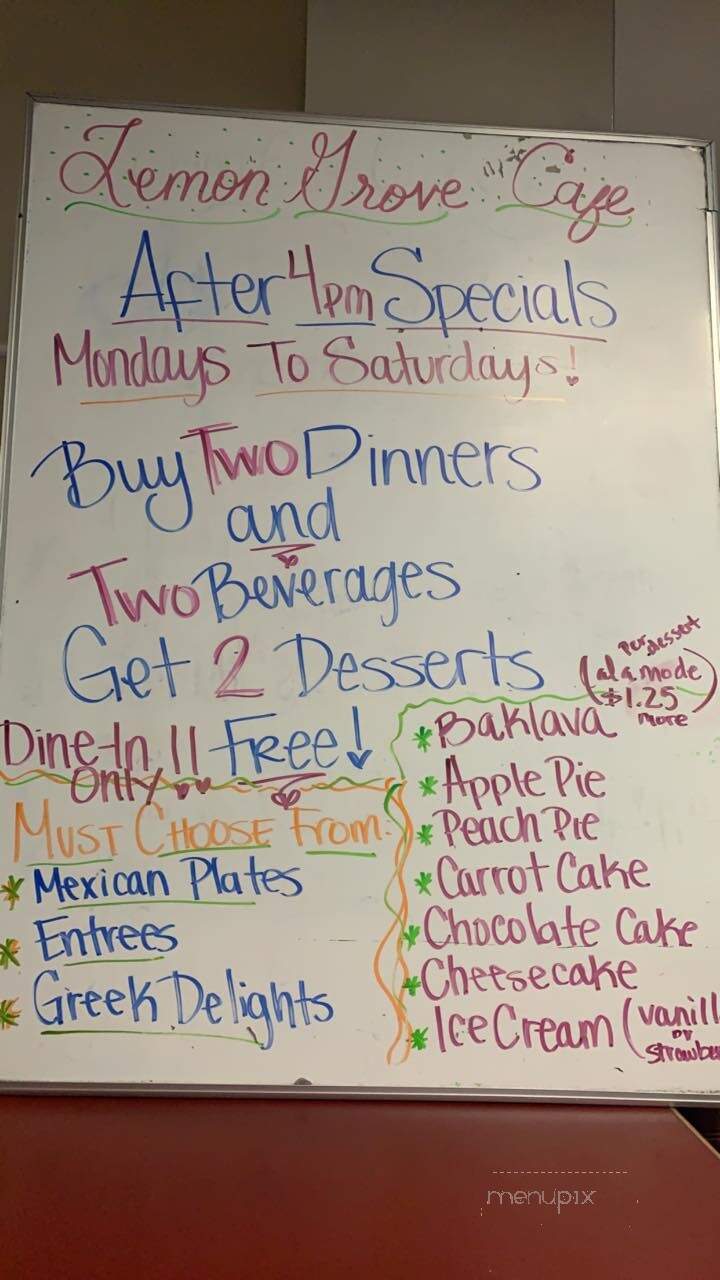 Lemon Grove Cafe
After 4pm Specials
Mondays To Saturdays!
Buy Two Dinners
and
Two Beverages
Get 2 Desserts
Dine-In !! Free!
Only
(al a mode
$1.25
more
per dessert)
Must Choose From:
* Mexican Plates
* Entrees
* Greek Delights
* Baklava
* Apple Pie
* Peach Pie
* Carrot Cake
* Chocolate Cake
* Cheesecake
* Ice Cream (vanill
or
strawbe
menupix